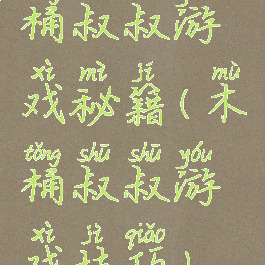 桶叔叔游
xì mì jí mù
戏秘籍(木
tǒng shū shū yóu
桶叔叔游
xì jì qiǎo
戏技巧)